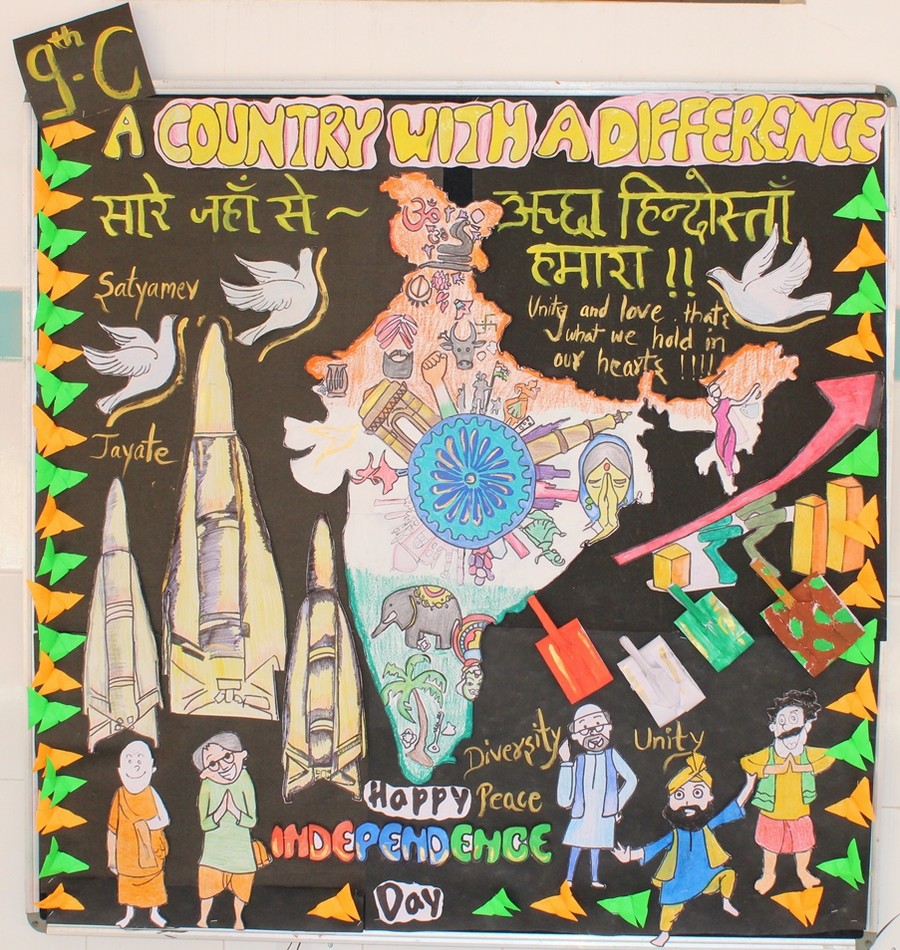 9th-C
A COUNTRY WITH A DIFFERENCE
सारे जहाँ से ~ अच्छा हिन्दोस्ताँ
हमारा !!
Satyamev
Jayate
Unity and love thats
what we hold in
our hearts !!!!
ॐ
Diversity Unity
Happy Peace
INDEPENDENCE
Day